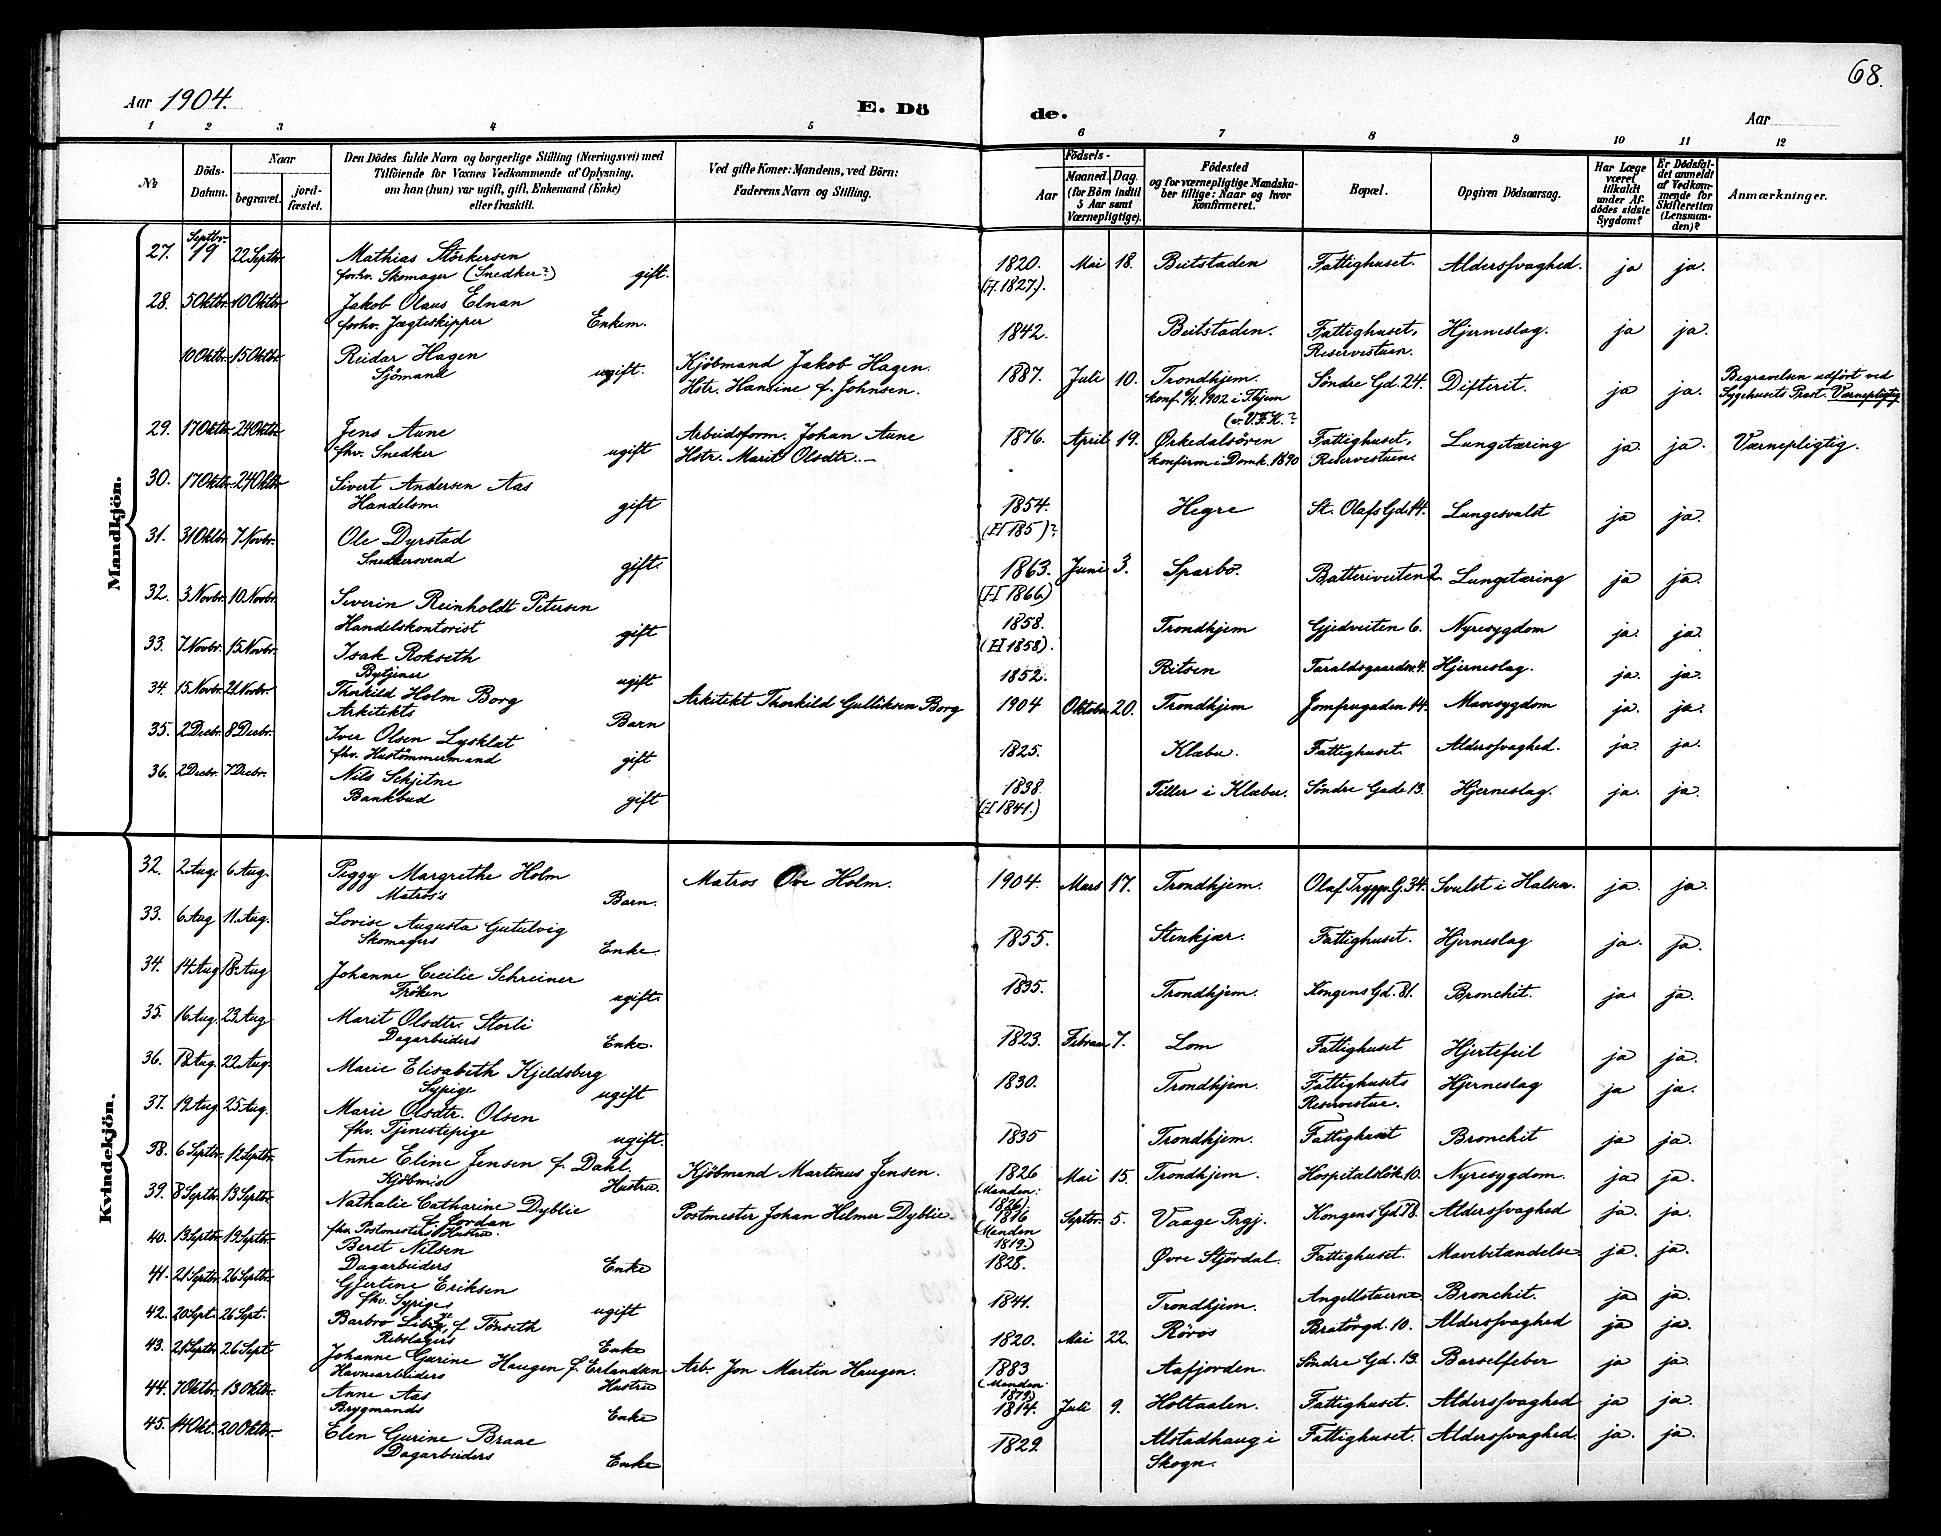 68.
Aar 1904.
E. Dö
de.
Aar
1 2 3 4 5 6 7 8 9 10 11 12
№
Döds-
Datum.
Naar
begravet.
jord-
fæstet.
Den Dödes fulde Navn og borgerlige Stilling (Næringsvei) med
Tilföiende for Voxnes Vedkommende af Oplysning,
om han (hun) var ugift, gift, Enkemand (Enke)
eller fraskilt.
Ved gifte Koner: Mandens, ved Börn:
Faderens Navn og Stilling.
Födsels-
Aar
Maaned. Dag.
(for Börn indtil
5 Aar samt
Værnepligtige).
Födested
og for værnepligtige Mandska-
ber tillige: Naar og hvor
konfirmeret.
Bopæl.
Opgiven Dödsaarsag.
Har Læge
været
tilkaldt
under Af-
dödes sidste
Sygdom?
Er Dödsfal-
det anmeldt
af Vedkom-
mende for
Skifteretten
(Lensman-
den)?
Anmærkninger.
Mandkjön.
27. Septbr. 19 22 Septbr. Mathias Störkersen 1820. Mai 18. Beitstaden Fattighuset. Aldersvaghed. ja ja.
forhv. Skomager (Snedker?) gift. (H. 1827).
28. 5 Oktbr. 10 Oktbr. Jakob Olaus Elnan
forhv. Jægteskipper Enkem. 1842. Beitstaden. Fattighuset, Hjerneslag. ja ja.
Reservestuen.
10 Oktbr. 15 Oktbr. Reidar Hagen Kjöbmand Jakob Hagen. 1887. Juli 10. Trondhjem. Söndre Gd. 24. Difterit. ja ja. Begravelsen udfört ved
Sjömand ugift. Hstr. Hansine f. Johnsen. konf. 6/4 1902 i Thjem Sygehusets Præst. Værnepligtig
(v. V.F.K.?
29. 17 Oktbr. 24 Oktbr. Jens Aune Arbeidsform. Johan Aune 1876. April 19. Ørkedalsören Fattighuset, Lungetæring ja ja. Værnepligtig.
fhv. Snedker ugift Hstr. Marit Olsdtr. konfirm i Domk. 1890 Reservestuen.
30. 17 Oktbr. 24 Oktbr. Sivert Andersen Aas
Handelsm. gift 1854. Hegre St. Olafs Gd. 14. Lungesvulst ja ja.
(H 185 )?
31. 31 Oktbr. 7 Novbr. Ole Dyrstad
Snedkersvend gift. 1863. Juni 3. Sparbo. Batteriveiten 2. Lungetæring ja ja.
(H 1866)
32. 3 Novbr. 10 Novbr. Severin Reinholdt Petersen
Handelskontorist gift 1858. Trondhjem Gjedveiten 6. Nyresygdom ja. ja.
(H 1858).
33. 7 Novbr. 15 Novbr. Isak Rokseth
Bytjener ugift 1852. Ritsen Taraldsgaarden 4. Hjerneslag. ja. ja.
34. 15 Novbr. 21 Novbr. Thorkild Holm Borg Arkitekt Thorkild Gulliksen Borg 1904 Oktober 20. Trondhjem Jomfrugaden 14. Mavesygdom ja. ja.
Arkitekts Barn
35. 2 Decbr. 8 Decbr. Iver Olsen Lysklæt
fhv. Hustömmermand gift 1825. Klæbu. Fattighuset. Aldersvaghed. ja. ja.
36. 2 Decbr. 7 Decbr. Nils Schjetne
Bankbud gift 1838. Tiller i Klæbu. Söndre Gade 13. Hjerneslag. ja. ja.
(H 1841.)
Kvindekjön.
32. 2 Aug. 6 Aug. Peggy Margrethe Holm Matros Ove Holm. 1904. Mars 17. Trondhjem. Olaf Trygv. G. 34. Svulst i Halsen. ja. ja.
Matros's Barn.
33. 6 Aug 11. Aug. Lovise Augusta Gutulvig
Skomagers Enke 1855. Stenkjær. Fattighuset. Hjerneslag ja. ja.
34. 14 Aug 18. Aug Johanne Cecilie Schreiner
Fröken ugift. 1835. Trondhjem. Kongens Gd. 81. Bronchit. ja. ja.
35. 16 Aug. 23 Aug Marit Olsdtr. Storli
Dagarbeiders Enke. 1823. Februar 7. Lom Fattighuset Hjertefeil ja ja.
36. 18 Aug. 22 Aug. Marie Elisabeth Kjeldsberg
Sypige ugift 1830. Trondhjem. Fattighusets Hjerneslag ja ja.
Reservestue.
37. 19 Aug. 25 Aug. Marie Olsdtr. Olsen
fhv. Tjenestepige ugift. 1835 Trondhjem. Fattighuset Bronchit ja ja.
38. 6 Septbr. 12 Septbr. Anne Eline Jensen f. Dahl. Kjöbmand Martinus Jensen. 1826 Mai 15. Trondhjem. Hospitalslök. 10. Nyresygdom. ja ja.
Kjöbmds Hustru. (Manden:
1826)
39. 8 Septbr. 13 Septbr. Nathalie Catharine Dyblie Postmester Johan Helmer Dyblie. 1816 Septbr. 5. Vaage Prgj. Kongens Gd. 78. Aldersvaghed ja. ja.
f. Jordan (Manden
fhv. Postmesters Hustru. 1819.)
40. 13 Septbr. 19 Septbr. Beret Nilsen
Dagarbeiders Enke 1828. Øvre Stjördal. Fattighuset. Mavebetændelse ja. ja.
41. 21 Septbr. 26 Septbr. Gjertine Eriksen
fhv. Sypige ugift 1841. Trondhjem. Angellstuerne Bronchit. ja ja.
42. 20 Sept. 26 Sept. Barbro f. Tönseth
Rebslagers Enke 1820. Mai 22. Röros Bratörgd. 10. Aldersvaghed ja ja.
43. 21 Septbr. 26 Sept. Johanne Gurine Haugen f. Erlandsen Arb. Jon Martin Haugen. 1883 Aafjorden. Söndre Gd. 13. Barselfeber ja ja.
Havnearbeiders Hustru (Manden
1879)
44. 7 Oktbr. 13 Oktbr. Anne Aas 1814. Juli 9. Holtaalen. Fattighuset. Aldersvaghed ja ja.
Brygmands Enke
45. 14 Okt. 20 Oktbr. Elen Gurine Braae 1829. Alstadhaug i Fattighuset. Aldersvaghed. ja. ja.
Dagarbeiders Enke Skogn.